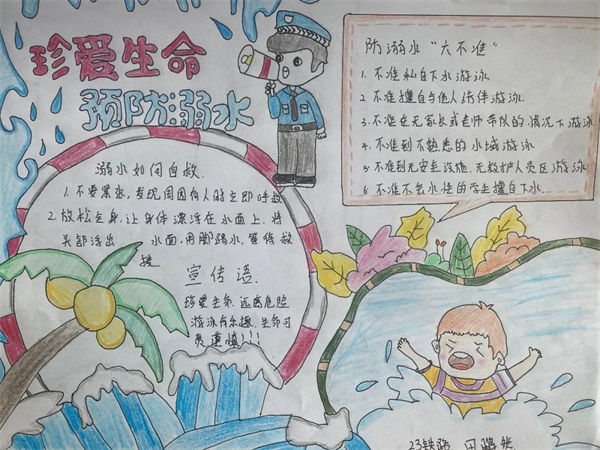 珍爱生命
预防溺水
防溺水“六不准”
1. 不准私自下水游泳
2. 不准擅自与他人结伴游泳
3. 不准在无家长或老师带队的情况下游泳
4. 不准到不熟悉的水域游泳
5. 不准到无安全设施、无救护人员区游泳
6 不准不会水性的学生擅自下水
溺水如何自救
1. 不要紧张,发现周围有人时立即呼救
2. 放松全身,让身体漂浮在水面上,将
头部浮出 水面,用脚踢水,等待救
援
宣传语
珍爱生命,远离危险
游泳有乐趣,生命可
贵